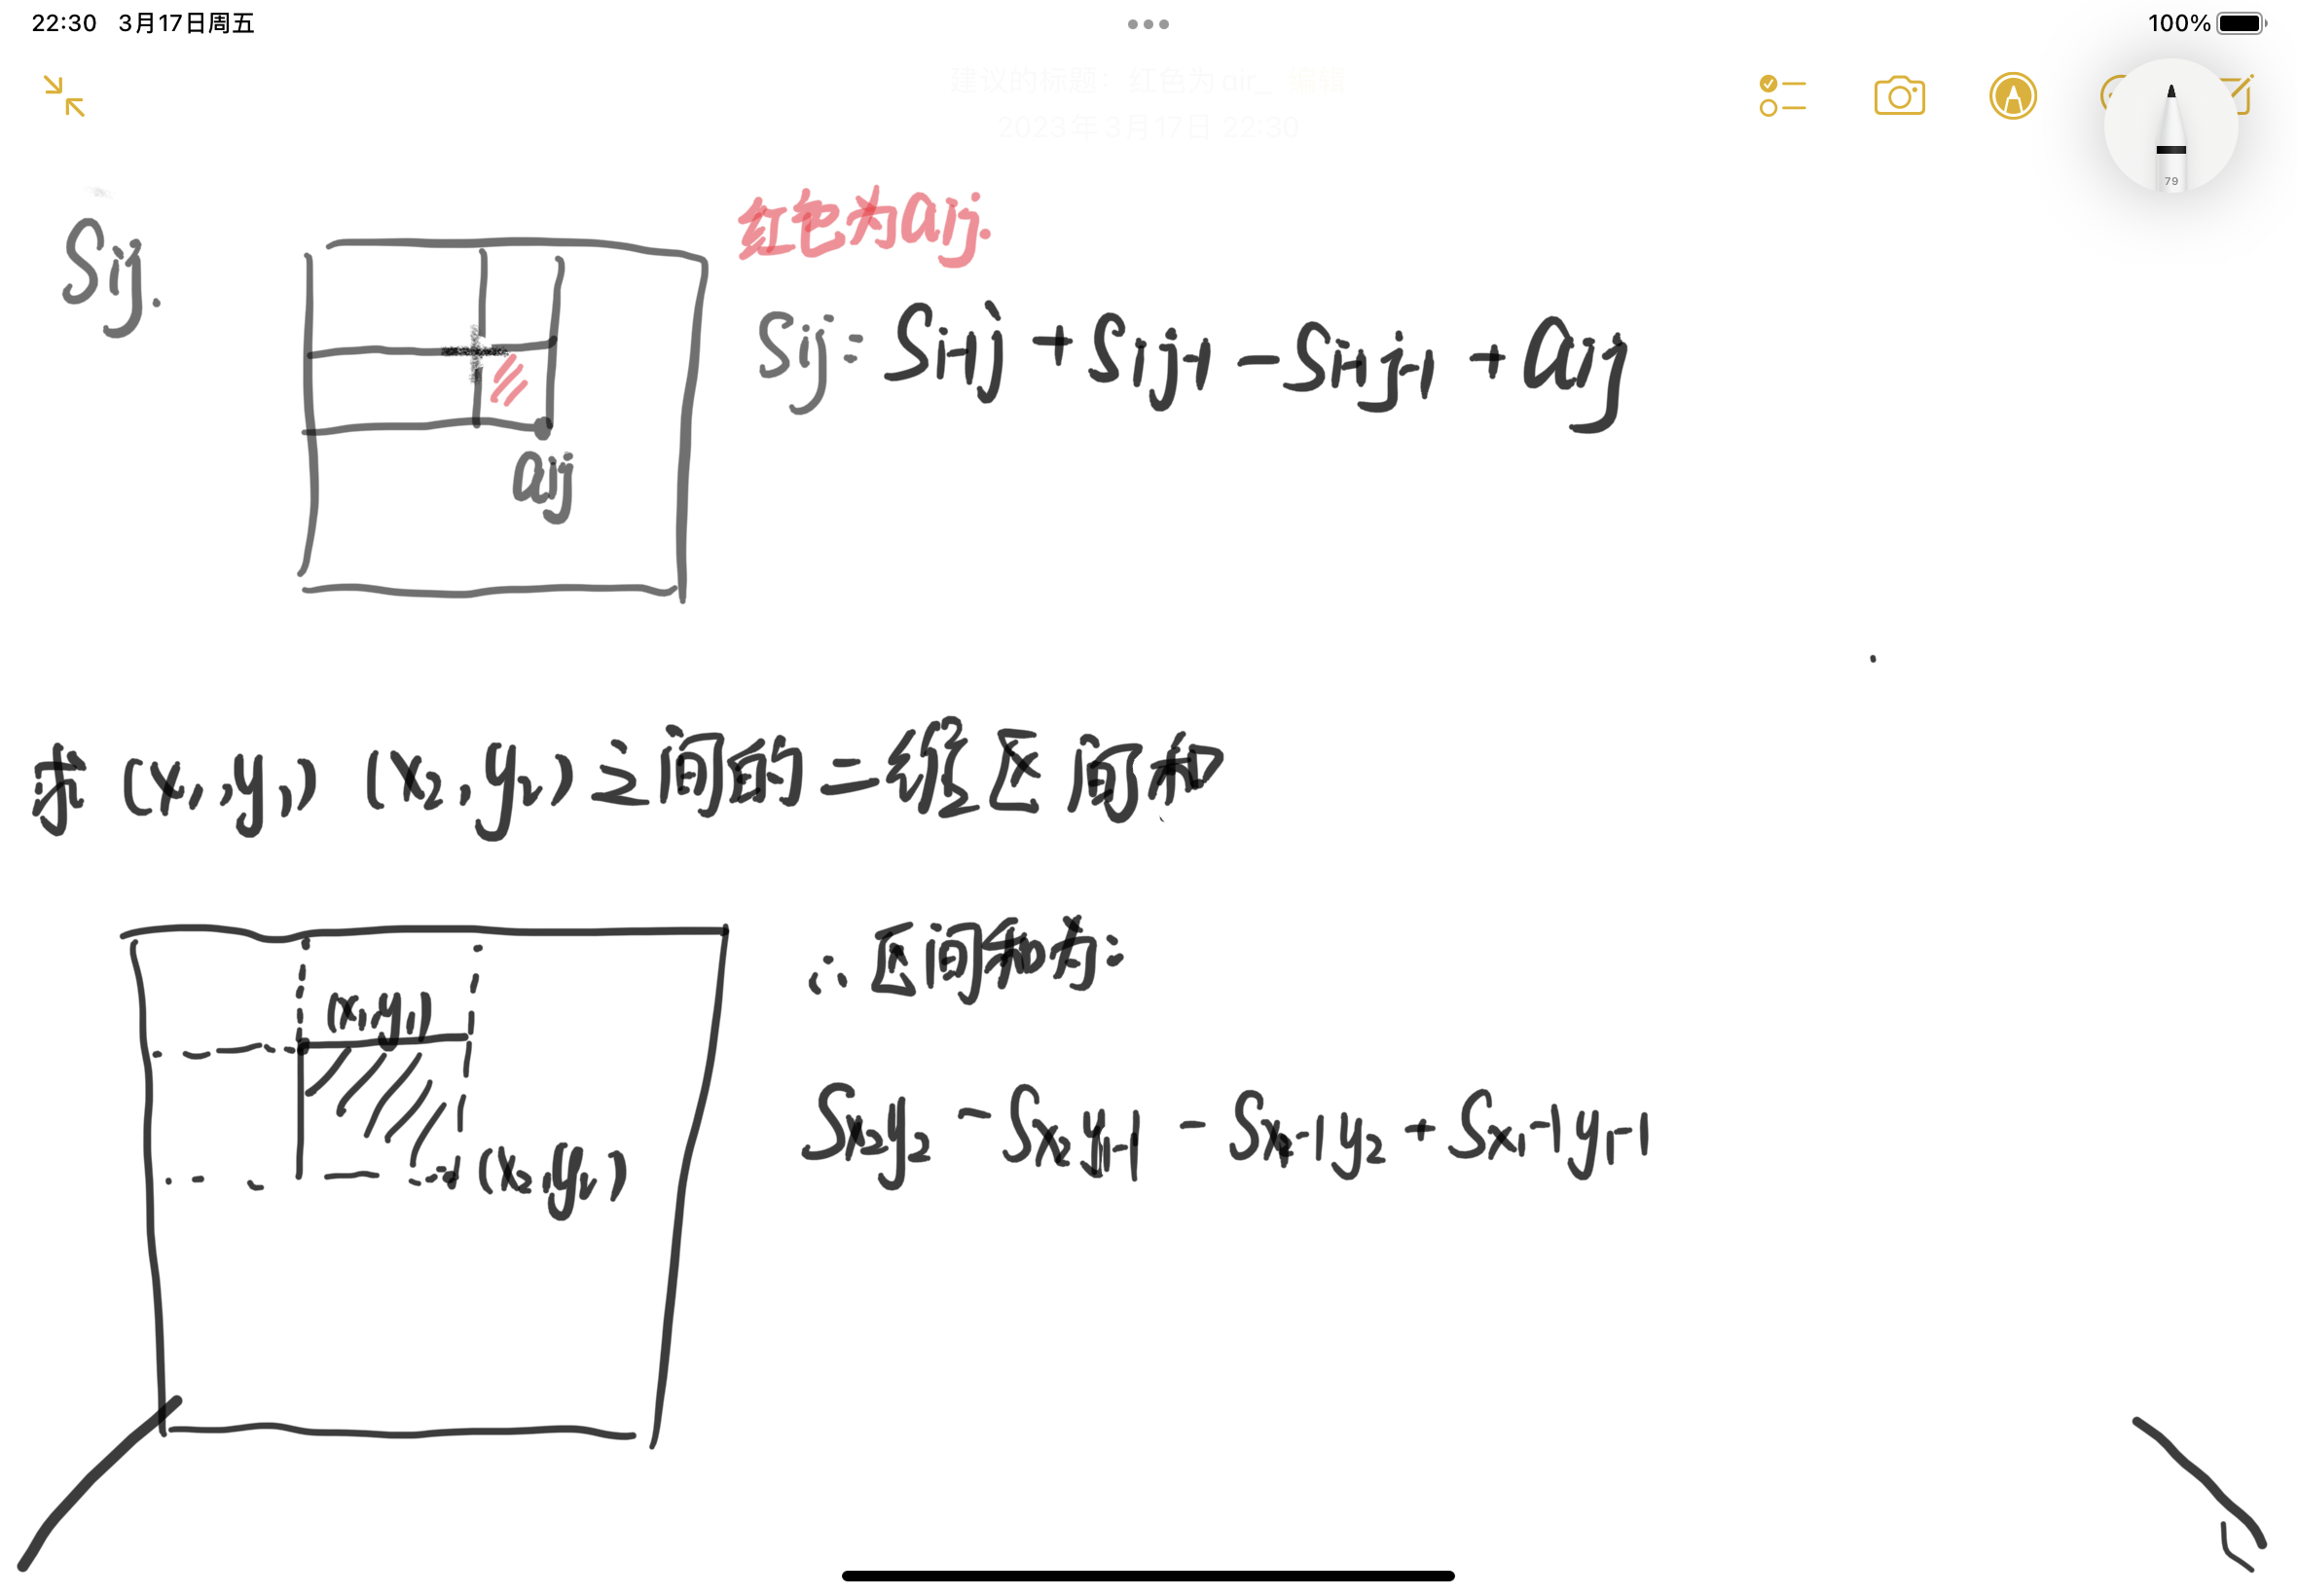 22:30 3月17日周五
100%
建议的标题：红色为air_ 编辑
2023年3月17日 22:30
79
红色为aij.
Sij.
Sij = Si-1j + Sij-1 - Si-1j-1 + aij
aij
求 (x1,y1) (x2,y2) 之间的二维区间和
∴区间和为:
(x1,y1)
Sx2y2 - Sx2y1-1 - Sx1-1y2 + Sx1-1y1-1
(x2,y2)